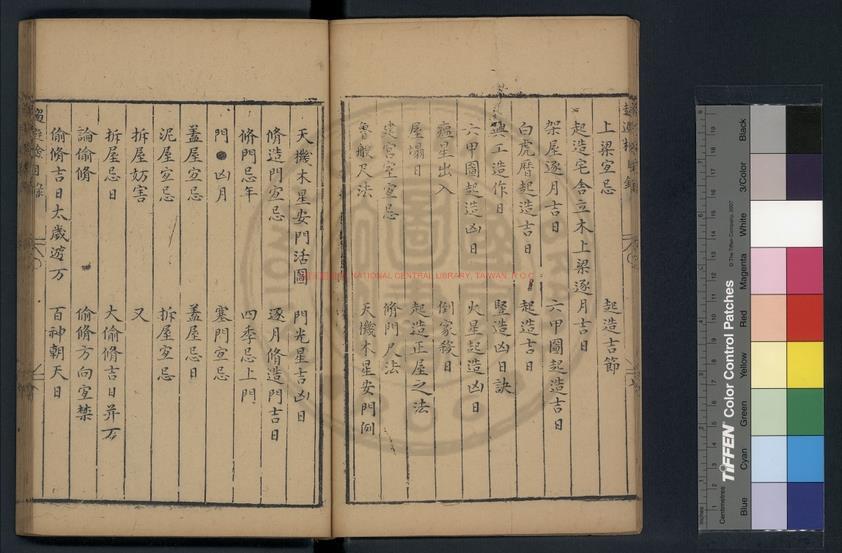 上梁宜忌　起造吉節
起造宅舍立木上梁逐月吉日
架屋逐月吉日　六甲圖起造吉日
白虎曆起造吉日　起造吉日
興工造作日　豎造凶日訣
六甲圖起造凶日　火星起造凶日
瘟星出入　倒家殺日
屋塌日　起造正屋之法
建宮室宜忌　修門尺法
魯般尺法　天機木星安門例
天機木星安門活圖　門光星吉凶日
修造門宜忌　逐月修造門吉日
修門忌年　四季忌上門
門凶月　塞門宜忌
蓋屋宜忌　蓋屋忌日
泥屋宜忌　拆屋宜忌
拆屋妨害　又
拆屋忌日　大偷修吉日并方
論偷修　偷修方向宜禁
偷修吉日太歲遊方　百神朝天日
NATIONAL CENTRAL LIBRARY, TAIWAN, R.O.C.
TIFFEN Color Control Patches
© The Tiffen Company, 2007
Centimetres
Blue
Cyan
Green
Yellow
Red
Magenta
White
3/Color
Black